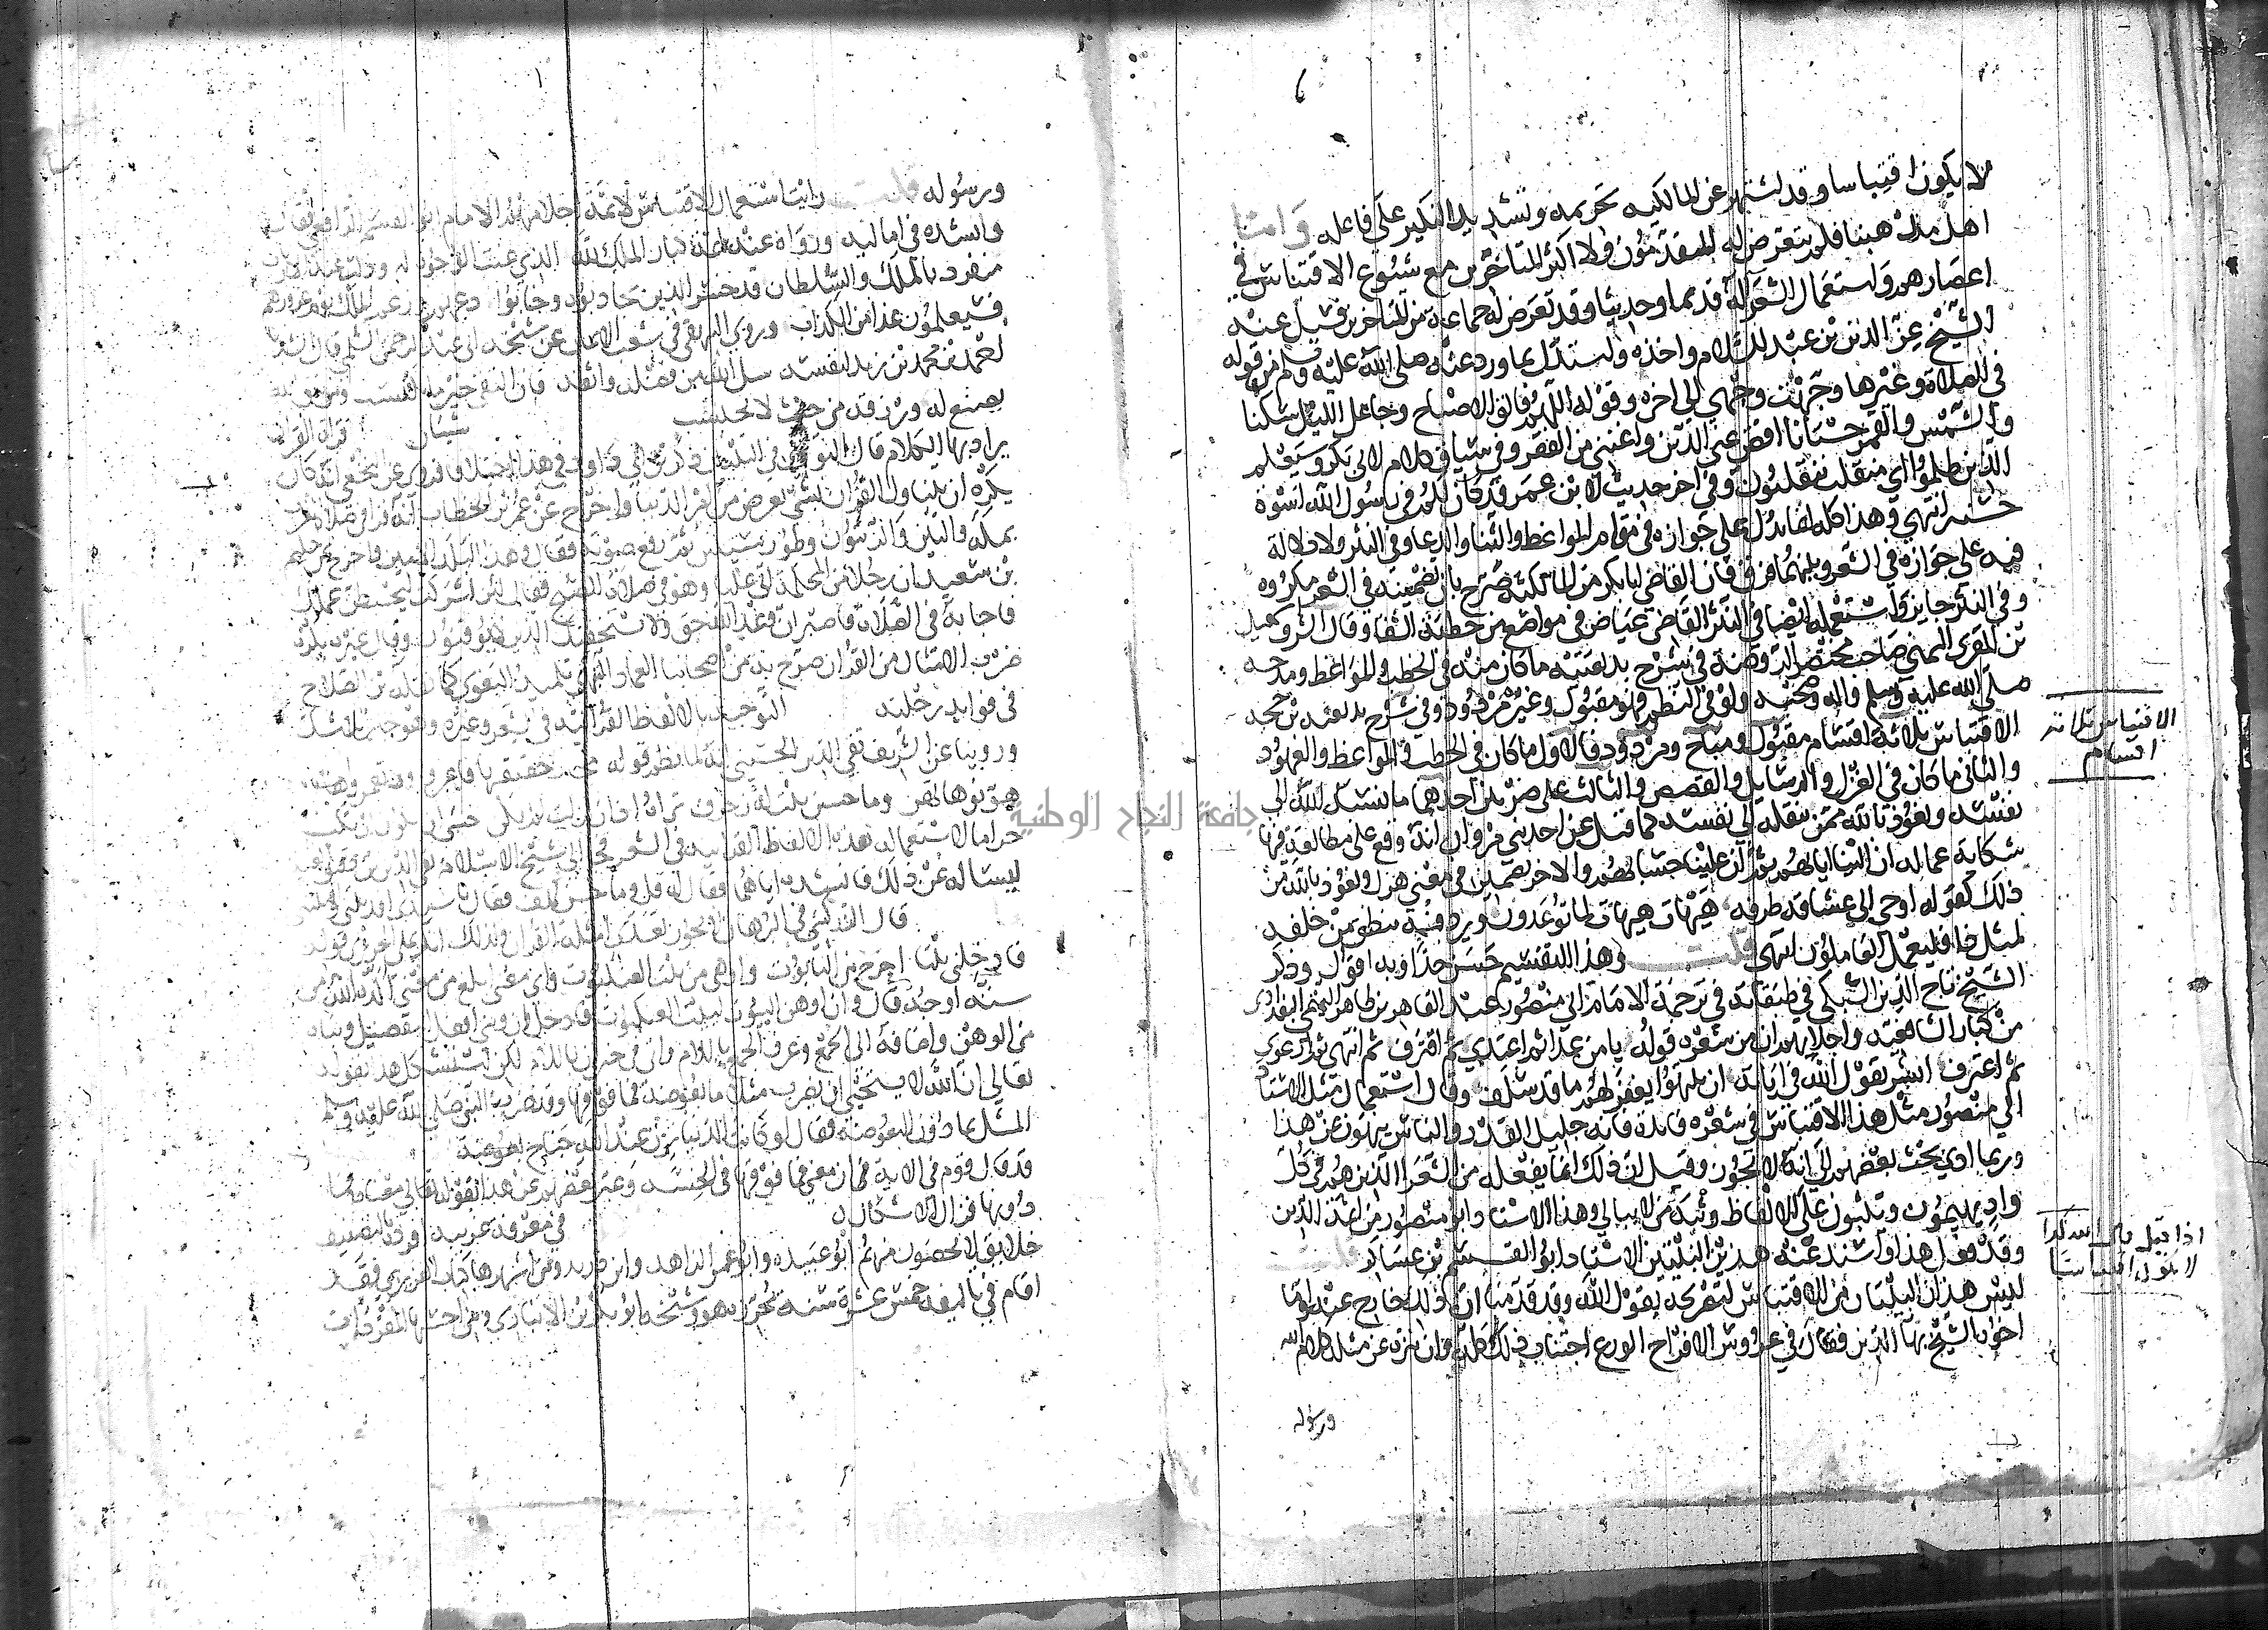 لا يكون اقتباسا وقد اشتهر عن المالكيه تحريمه وتشديد النكير على فاعله وامّا
اهل مذهبنا فلم يتعرض له المتقدمون ولا اكثر المتاخرين مع شيوع الاقتباس في
اعصارهم واستعمال الشعرآء له قديما وحديثا وقد تعرض له جماعة من المتاخرين فسيل عنه
الشيخ عز الدين بن عبد السلام واخذه واستدل بما ورد عنه صلى الله عليه وسلم من قوله
في الصلاة وغيرها وجهت وجهي الى اخره وقوله اللهم فالق الاصباح وجاعل الليل سكنا
والشمس والقمر حسبانا اقض عني الدين واغنني من الفقر وفي سياق كلام لابي بكر وسيعلم
الذين ظلموا اي منقلب ينقلبون وفي اخر حديث لابن عمر قد كان لكم في رسول الله اسوة
حسنه انتهى وهذا كله انما يدل على جوازه في مقام المواعظ والثنا والدعا وفي النثر ولا دلالة
فيه على جوازه في الشعر وبينهما فرق فان القاضي ابا بكر من المالكية صرح بان تضمينه في الشعر مكروه
وفي النثر جايز واستعمله ايضا في النثر القاضي عياض في مواضع من خطبة الشفا وقال الشرف اسمعيل
بن المقري اليمني صاحب مختصر الروضة في شرح بديعيته ما كان منه في الخطب والمواعظ ومدحه
صلى الله عليه وسلم واله وصحبه ولو في النظم فهو مقبول وغيره مردود وفي شرح بديعيه بن حجه
الاقتباس ثلاثة اقسام مقبول ومباح ومردود فالاول ما كان في الخطب والمواعظ والعهود
والثاني ما كان في الغزل والرسايل والقصص والثالث على ضربين احدهما ما نسبه الله الى
نفسه ونعوذ بالله ممن ينقله الى نفسه كما قيل عن احد بني مروان انه وقع على مطالعة فيها
شكاية عماله ان الينا ايابهم ثم ان علينا حسابهم والاخر تضمين في معنى هزل ونعوذ بالله من
ذلك كقوله اوحى الى عشاقه طرفه هيهات هيهات لما توعدون وردفه ينطق من خلفه
لمثل ذا فليعمل العاملون انتهى قلت وهذا التقسيم حسن جدا وبه اقول وذكر
الشيخ تاج الدين السبكي في طبقاته في ترجمة الامام ابي منصور عبد القاهر بن طاهر التميمي البغدادي
من كبار الشافعيه واجلايهم ان من شعره قوله يا من عدا ثم اعتدى ثم اقترف ثم انتهى ثم ارعوى
ثم اعترف ابشر بقول الله في اياته ان ينتهوا يغفر لهم ما قد سلف وقال استعمال مثل الاستاذ
ابي منصور مثل هذا الاقتباس في شعره فايدة فانه جليل القدر والناس ينهون عن هذا
وربما ادى بحث بعضهم الى انه لا يجوز وقيل ان ذلك انما يفعله من الشعرا الذين هم في كل
واد يهيمون ويثبون على الالفاظ وثبة من لا يبالي وهذا الاستاذ ابو منصور من ايمة الدين
وقد فعل هذا واسند عنه هذين البيتين الاستاذ ابو القسم بن عساكر قلت
ليس هذان البيتان من الاقتباس لتصريحه بقول الله وقد قدمنا ان ذلك خارج عنه وامّا
اخوه الشيخ بها الدين فقال في عروس الافراح الورع اجتناب ذلك كله وان ينزه عن مثله كلام الله
ورسوله
الاقتباس ثلاثة
اقسام
اذا قيل قال الله كذا
لا يكون اقتباسا
ورسوله قلت رايت استعمال الاقتباس لائمة اجلا منهم الامام ابو القسم الرافعي فقال
وانشده في اماليه ورواه عنه ائمة كبار الملك لله الذي عنت الوجوه له
منفرد بالملك والسلطان قد خسر الذين حادبوه وخابوا دعهم وزعم الملك يوم غرورهم
فسيعلمون غدا من الكذاب وروى البيهقي في شعب الايمان عن شيخه ابي عبد الرحمن السلمي قال انشدنا
احمد بن محمد بن يزيد لنفسه سل الله من فضله واتقه فان التقى خير ما تكتسب ومن يتق الله
يصنع له ويرزقه من حيث لا يحتسب
يراد بها الكلام قال النووي في التبيان ذكر بن ابي داود في هذا اختلافا فروى عن النخعي انه كان
يكره ان يتاول القران بشي يعرض من امر الدنيا واخرج عن عمر بن الخطاب انه قرا في صلاة المغرب
بمكة والتين والزيتون وطور سينين ثم رفع صوته فقال وهذا البلد الامين واخرج عن حكيم
بن سعيد ان رجلا من المحكمة اتى عليا وهو في صلاة الصبح فقال لئن اشركت ليحبطن عملك
فاجابه في الصلاة فاصبر ان وعد الله حق ولا يستخفنك الذين لا يوقنون وقال غيره يكره
ضرب الامثال من القران صرح به من اصحابنا العماد البيهقي تلميذ البغوي كما نقله بن الصلاح
في فوايد رحلته التوجيه بالالفاظ القرآنيه في الشعر وغيره وهو جايز بلا شك
وروينا عن الشريف تقي الدين الحسيني انه لما نظم قوله مجاز حقيقتها فاعبروا ولا تعمروا هونوها
تهن وما حسن بيت له زخرف تراه اذا زلزلت لم يكن خشي ان يكون ارتكب
حراما لاستعماله هذه الالفاظ القرانيه في الشعر فجا الى شيخ الاسلام تقي الدين بن دقيق العيد
ليساله عن ذلك فانشده اياهما فقال له قل وما حسن كهف فقال يا سيدي افدتني وافتيتني
قال الزركشي في البرهان لا يجوز تعدى امثلة القران ولذلك انكر على الحريري قوله
فادخلني بيتا احرج من التابوت واوهى من بيت العنكبوت واي معنى ابلغ من معنى اكده الله من
ستة اوجه قال وان اوهن البيوت لبيت العنكبوت فادخل ان وبنى افعل التفضيل وبناه
من الوهن واضافه الى الجمع وعرف الجمع باللام واتى في خبر ان باللام لكن استشكل هذا بقوله
تعالى ان الله لا يستحيي ان يضرب مثلا ما بعوضة فما فوقها وقد ضرب النبي صلى الله عليه وسلم
المثل بما دون البعوضه فقال لو كانت الدنيا تزن عند الله جناح بعوضة
قد قال قوم في الاية ان معنى فما فوقها في الخسه وعبر بعضهم عن هذا بقوله تعالى معناه فما
دونها فزال الاشكال في معرفة غريبه افرده بالتصنيف
خلايق لا يحصون منهم ابو عبيده وابو عمر الزاهد وابن دريد ومن اشهرها كتاب العزيزي فقد
اقام في تاليفه خمس عشرة سنة يحرره هو وشيخه ابو بكر بن الانباري ومن احسنها المفردات
جامعة النجاح الوطنية